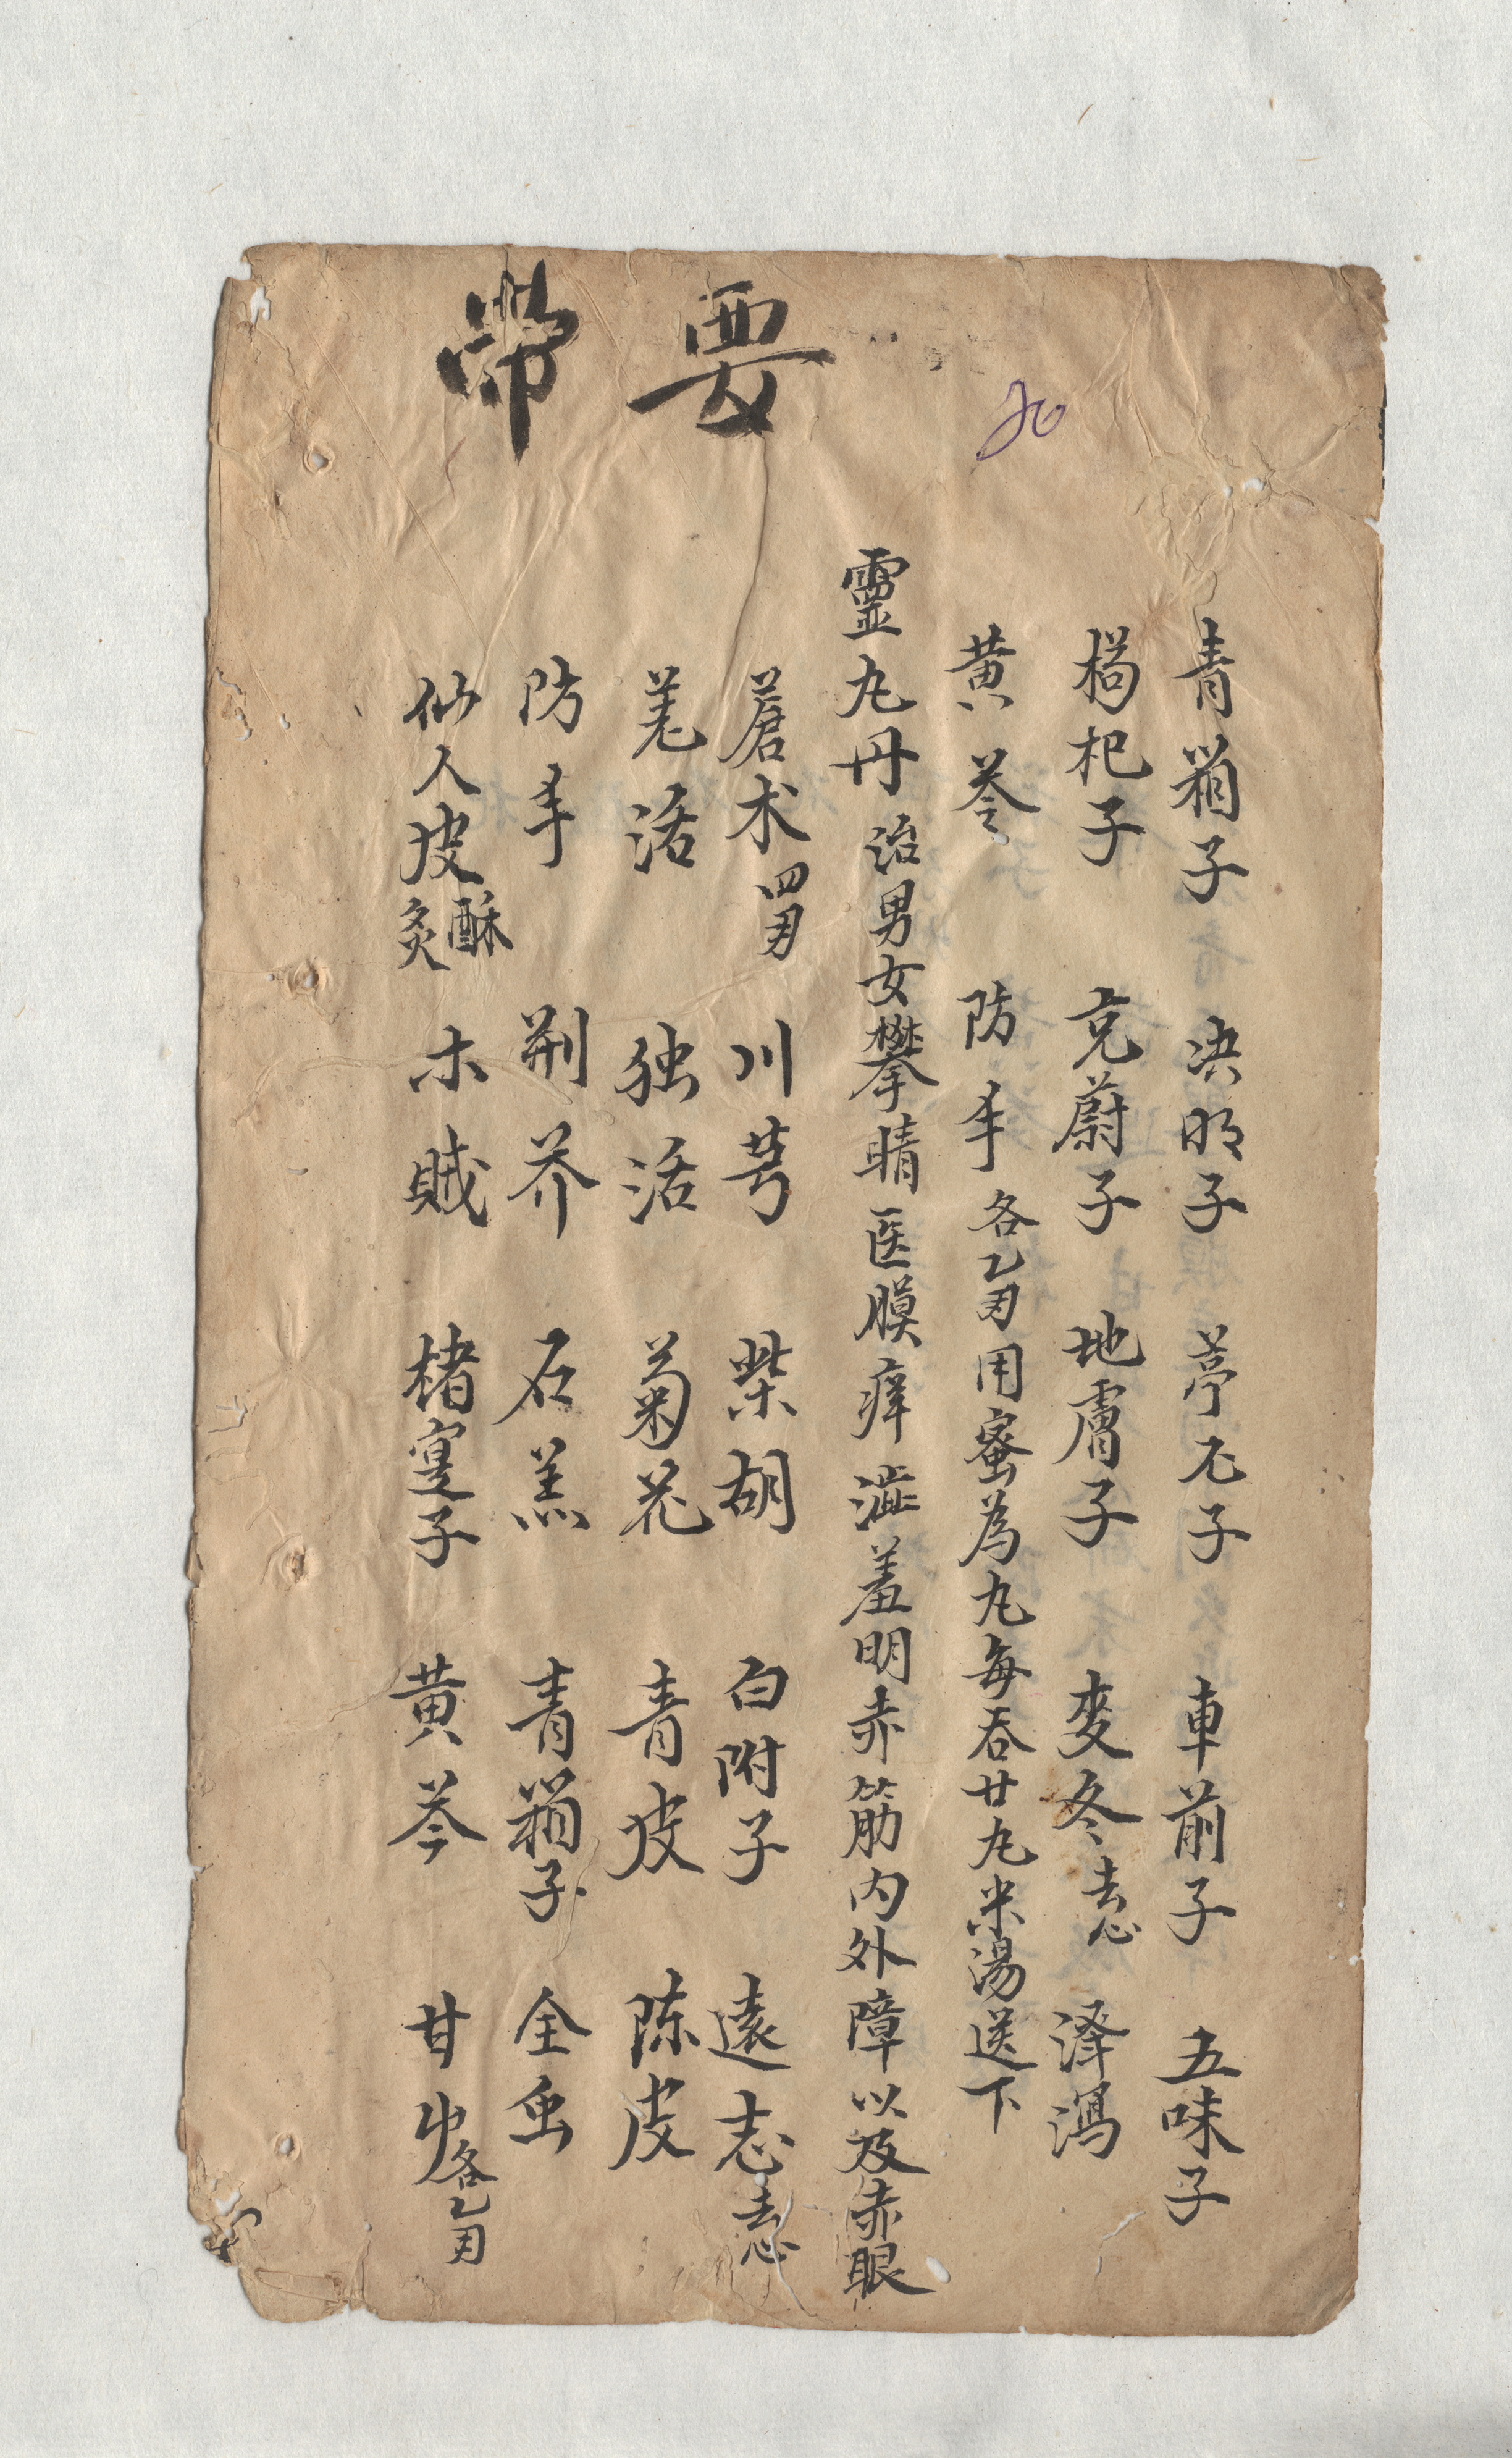 要帶
20
青箱子 决明子 葶苈子 車前子 五味子
枸杞子 茺蔚子 地膚子 麥冬去心 泽瀉
黄芩 防手各乙两用蜜為丸每吞廿丸米湯送下
靈丸丹 治男女攀睛医膜痒澁羞明赤筋内外障以及赤眼
蒼术四两 川芎 柴胡 白附子 遠志去心
羌活 独活 菊花 青皮 陈皮
防手 荆芥 石羔 青箱子 全虫
仙人皮酥炙 木賊 楮寔子 黄芩 甘屮各乙两